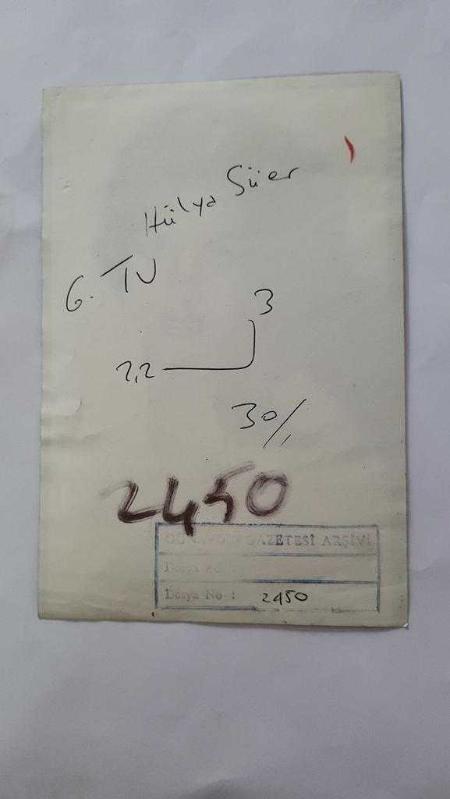 Hülya Süer
6. TV
3
2,2
30/.
2450
GAZETESİ ARŞİVİ
Dosya No :
2450